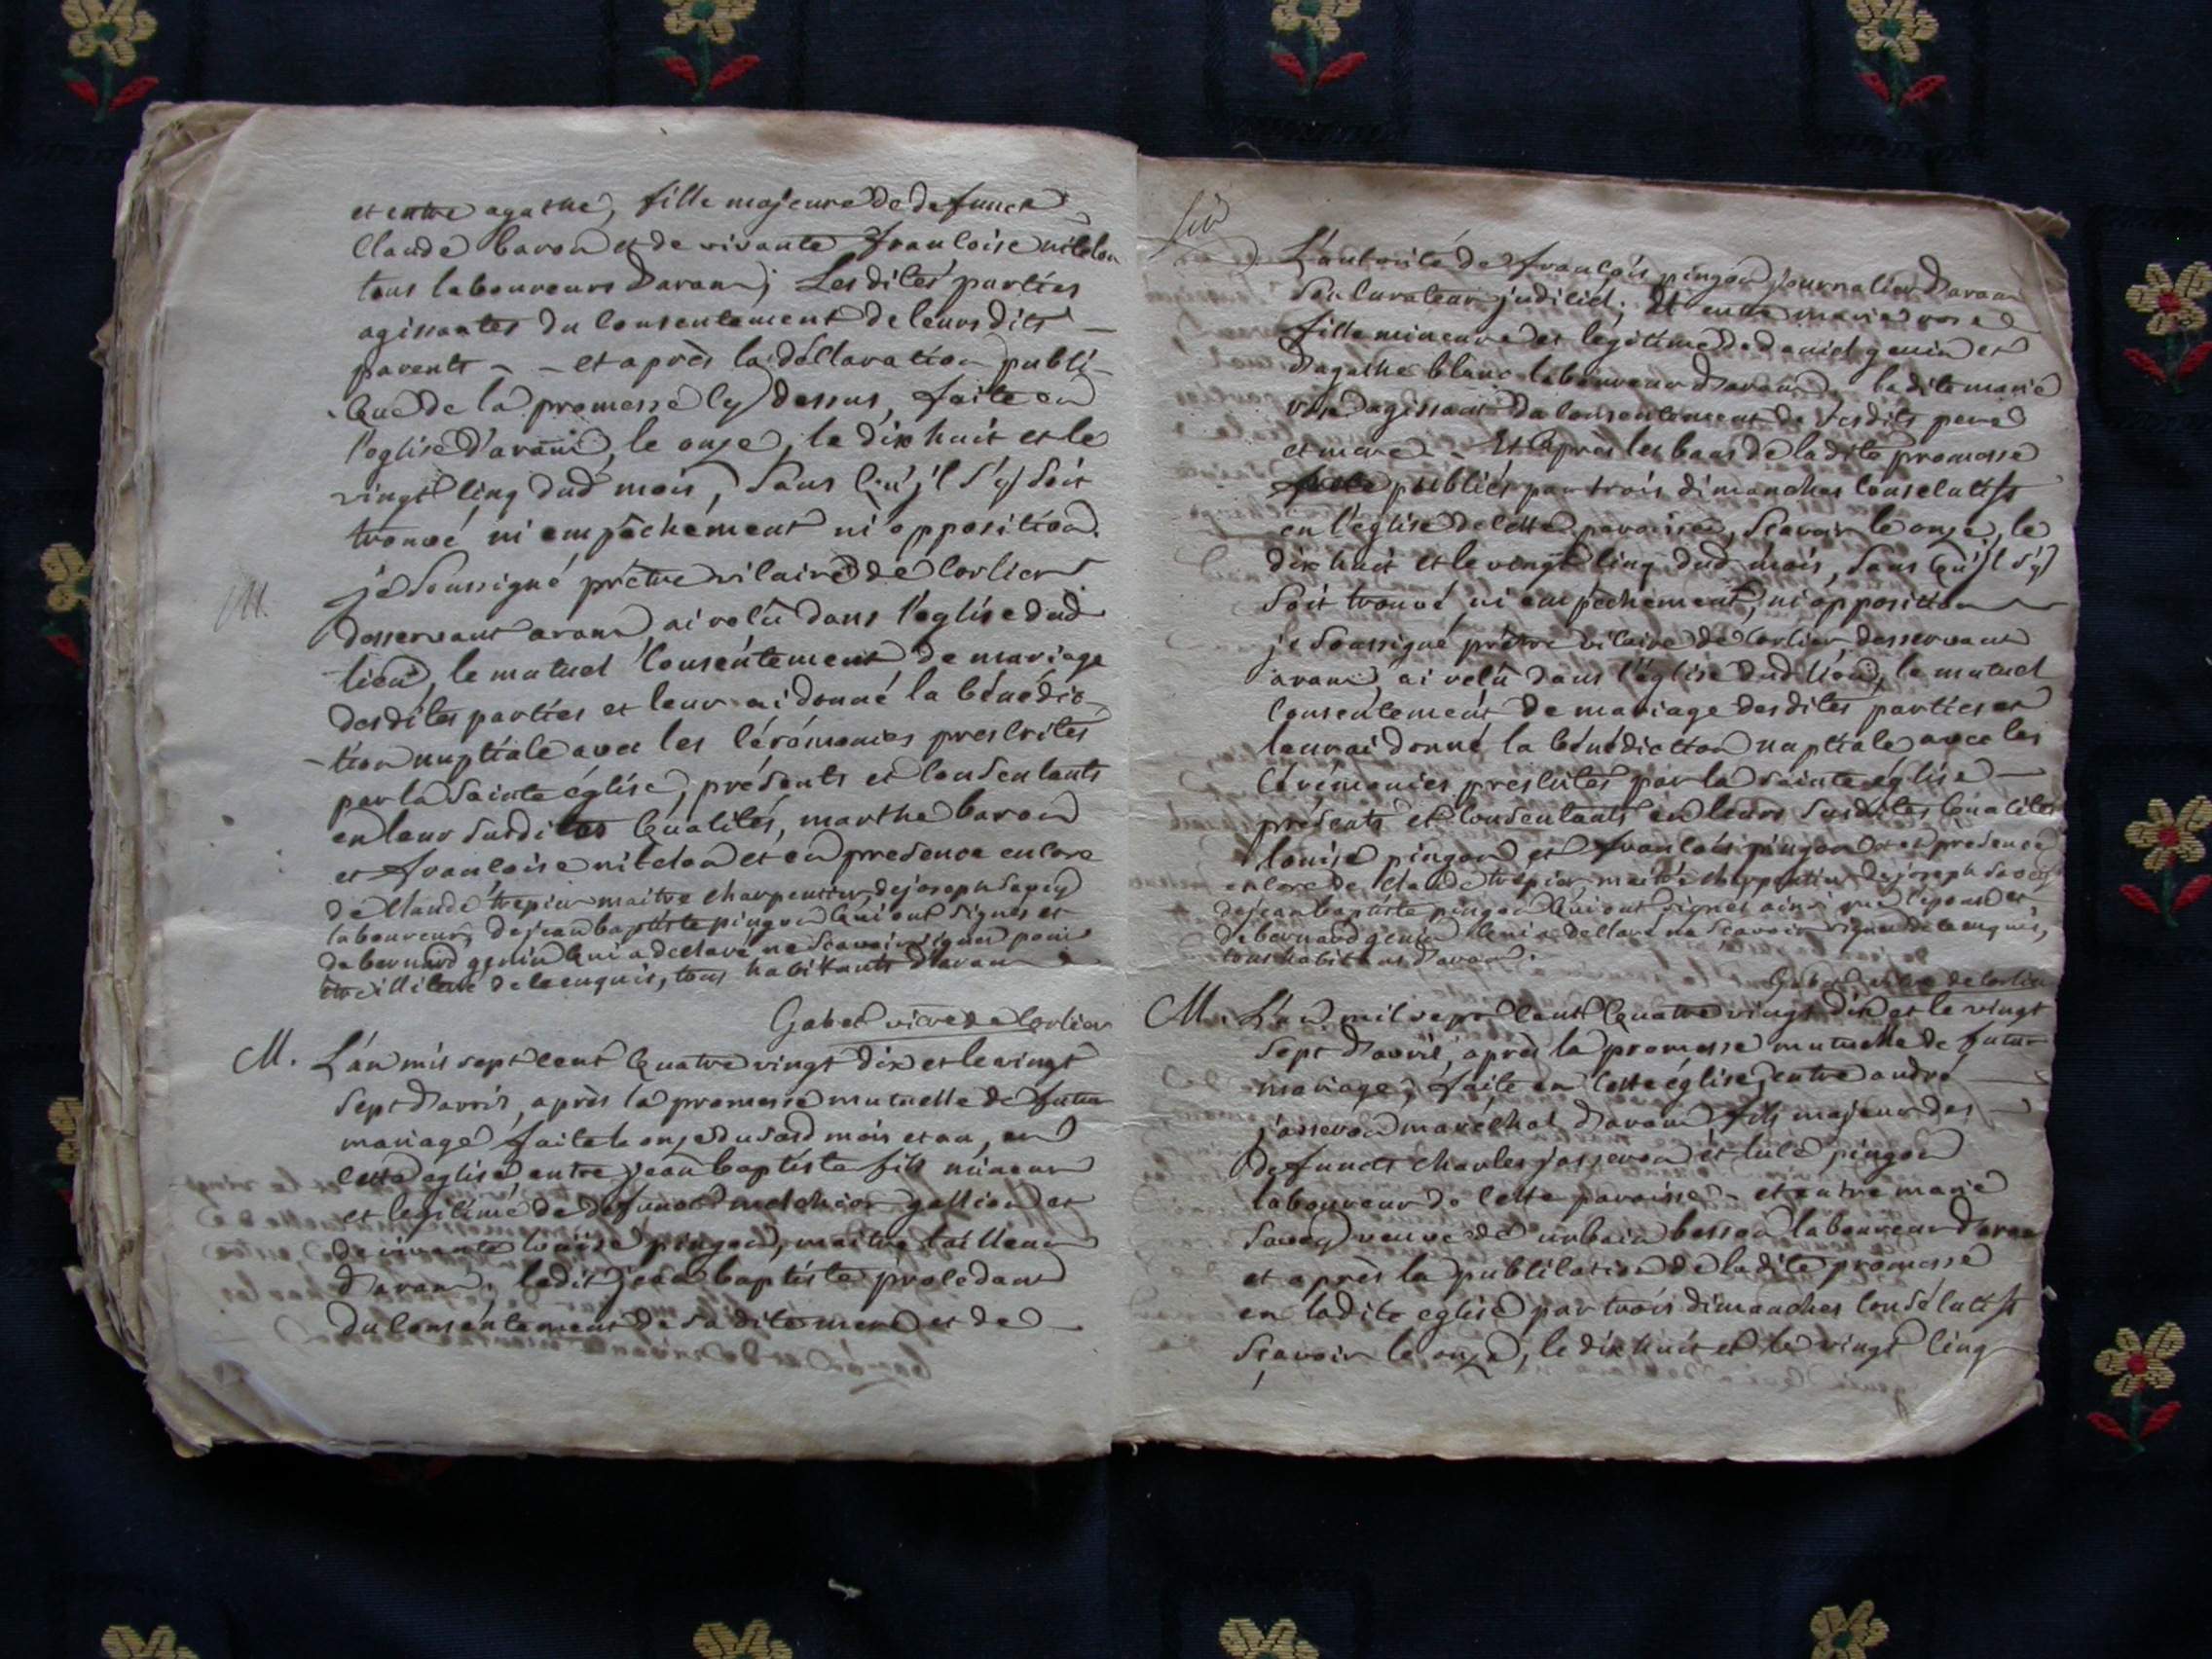 et entre agathe, fille majeure de defunct
Claude baron et de vivante francoise nicolon
tous laboureurs d'aram; Lesdites parties
agissantes du consentement de leursdits
parents - - et après la déclaration publi-
que de la promesse cy dessus, faite en
l'eglise d'aram, le onze, le dix huit et le
vingt cinq dud mois, sans qu'jl s'y soit
trouvé ni empêchement ni opposition.
je soussigné prêtre vicaire de Corlier
M. desservant aram, ai reçû dans l'eglise dud
lieu, le mutuel consentement de mariage
desdites parties et leur ai donné la bénédic-
-tion nuptiale avec les cérémonies prescrites
par la sainte église, présents et consentants
en leur susdites qualités, marthe baron
et francoise nicolon et en presence encore
de Claude trepier maitre charpentier, de joseph savey
laboureur, de jean baptiste pingon qui ont signés et
de bernard genin qui a declaré ne scavoir signer pour
être illiteré de ce enquis, tous habitants d'aram
Gabet vicre de Corlier
M. L'an mil sept cent quatre vingt dix et le vingt
sept d'avril, après la promesse mutuelle de futur
mariage faite le onze du susd mois et an, en
cette eglise, entre jean baptiste fils mineur
et legitime de defunct melchior gallion et
de vivante louise pingon, maitre tailleur
d'aram; ledit jean baptiste procedant
du consentement de sa dite mere et de
L'autorité de françois pingon journalier d'aram
son curateur judiciel; Et entre marie rose
fille mineure et légitime de daniel genin et
d'agathe blanc laboureur d'aram, ladite marie
rose agissant du consentement de sesdits pere
et mere - Et après les bans de ladite promesse
publiés par trois dimanches consecutifs
en l'eglise de cette paroisse, scavoir le onze, le
dix huit et le vingt cinq dud mois, sans qu'jl s'y
soit trouvé ni empêchement, ni opposition
je soussigné prêtre vicaire de Corlier, desservant
aram, ai reçû dans l'église dud lieu, le mutuel
consentement de mariage desdites parties et
leur ai donné la bénédiction nuptiale avec les
cérémonies prescrites par la sainte église
présents et consentants en leurs susdites qualités
louise pingon et françois pingon et en presence
encore de Claude trepier, maitre charpentier, de joseph savey
de jean baptiste pingon qui ont signés ainsi que l'epoux et
de bernard genin qui a declaré ne scavoir signer de ce enquis,
tous habitans d'aram.
Gabet vicre de Corlier
M. L'an mil sept cent quatre vingt dix et le vingt
sept d'avril, après la promesse mutuelle de futur
mariage, faite en cette église, entre andré
josseron maréchal d'aram fils majeur des
defuncts charles josseron et luce pingon
laboureur de cette paroisse - et entre marie
savey veuve de urbain besson laboureur d'aram
et après la publication de ladite promesse
en ladite eglise par trois dimanches consécutifs
scavoir le onze, le dix huit et le vingt cinq